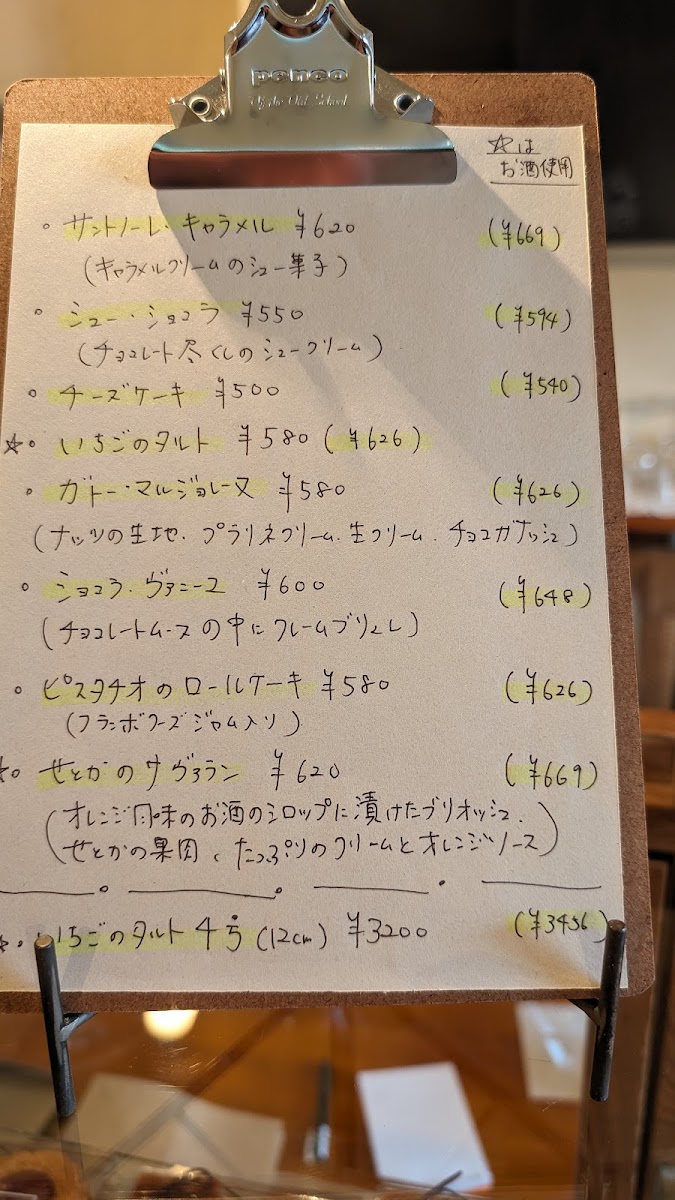 penco
Of the Old School
☆は
お酒使用
・サントノーレ・キャラメル ¥620 (¥669)
(キャラメルクリームのシュー菓子)
・シュー・ショコラ ¥550 (¥594)
(チョコレート尽くしのシュークリーム)
・チーズケーキ ¥500 (¥540)
☆・いちごのタルト ¥580 (¥626)
・ガトー・マルジョレーヌ ¥580 (¥626)
(ナッツの生地.プラリネクリーム.生クリーム.チョコガナッシュ)
・ショコラ・ヴァニーユ ¥600 (¥648)
(チョコレートムースの中にクレームブリュレ)
・ピスタチオのロールケーキ ¥580 (¥626)
(フランボワーズジャム入り)
☆・せとかのサヴァラン ¥620 (¥669)
(オレンジ風味のお酒のシロップに漬けたブリオッシュ.
せとかの果肉、たっぷりのクリームとオレンジソース)
☆・いちごのタルト4号(12cm) ¥3200 (¥3456)